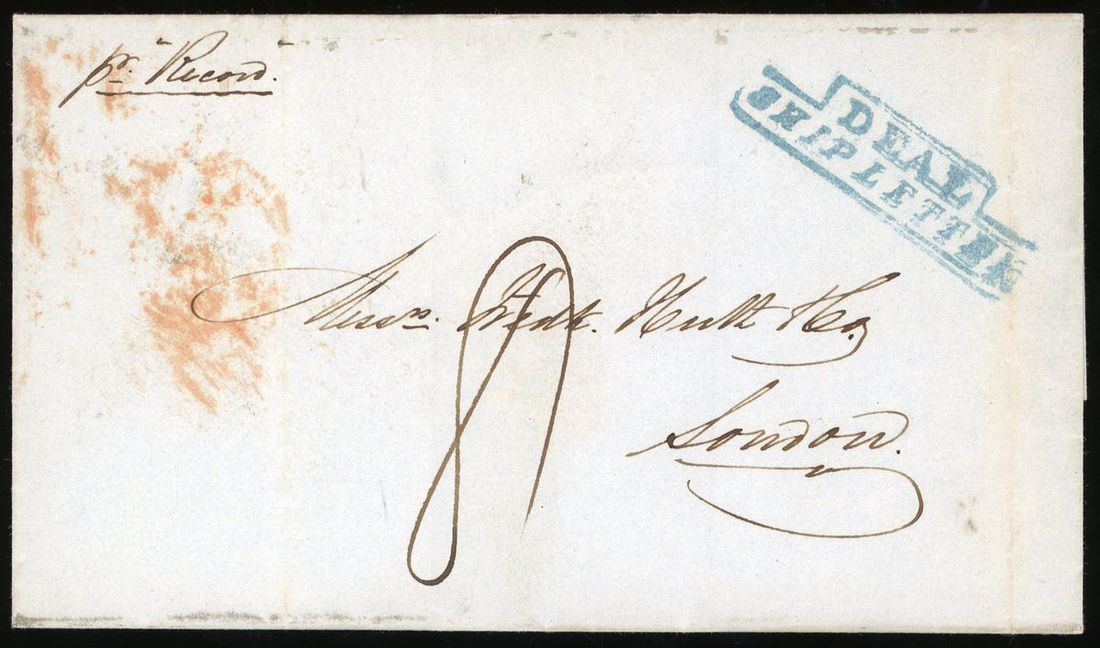 pr. "Record"
DEAL
SHIP LETTER
8
Messrs. Fredk. Huth & Co.
London.